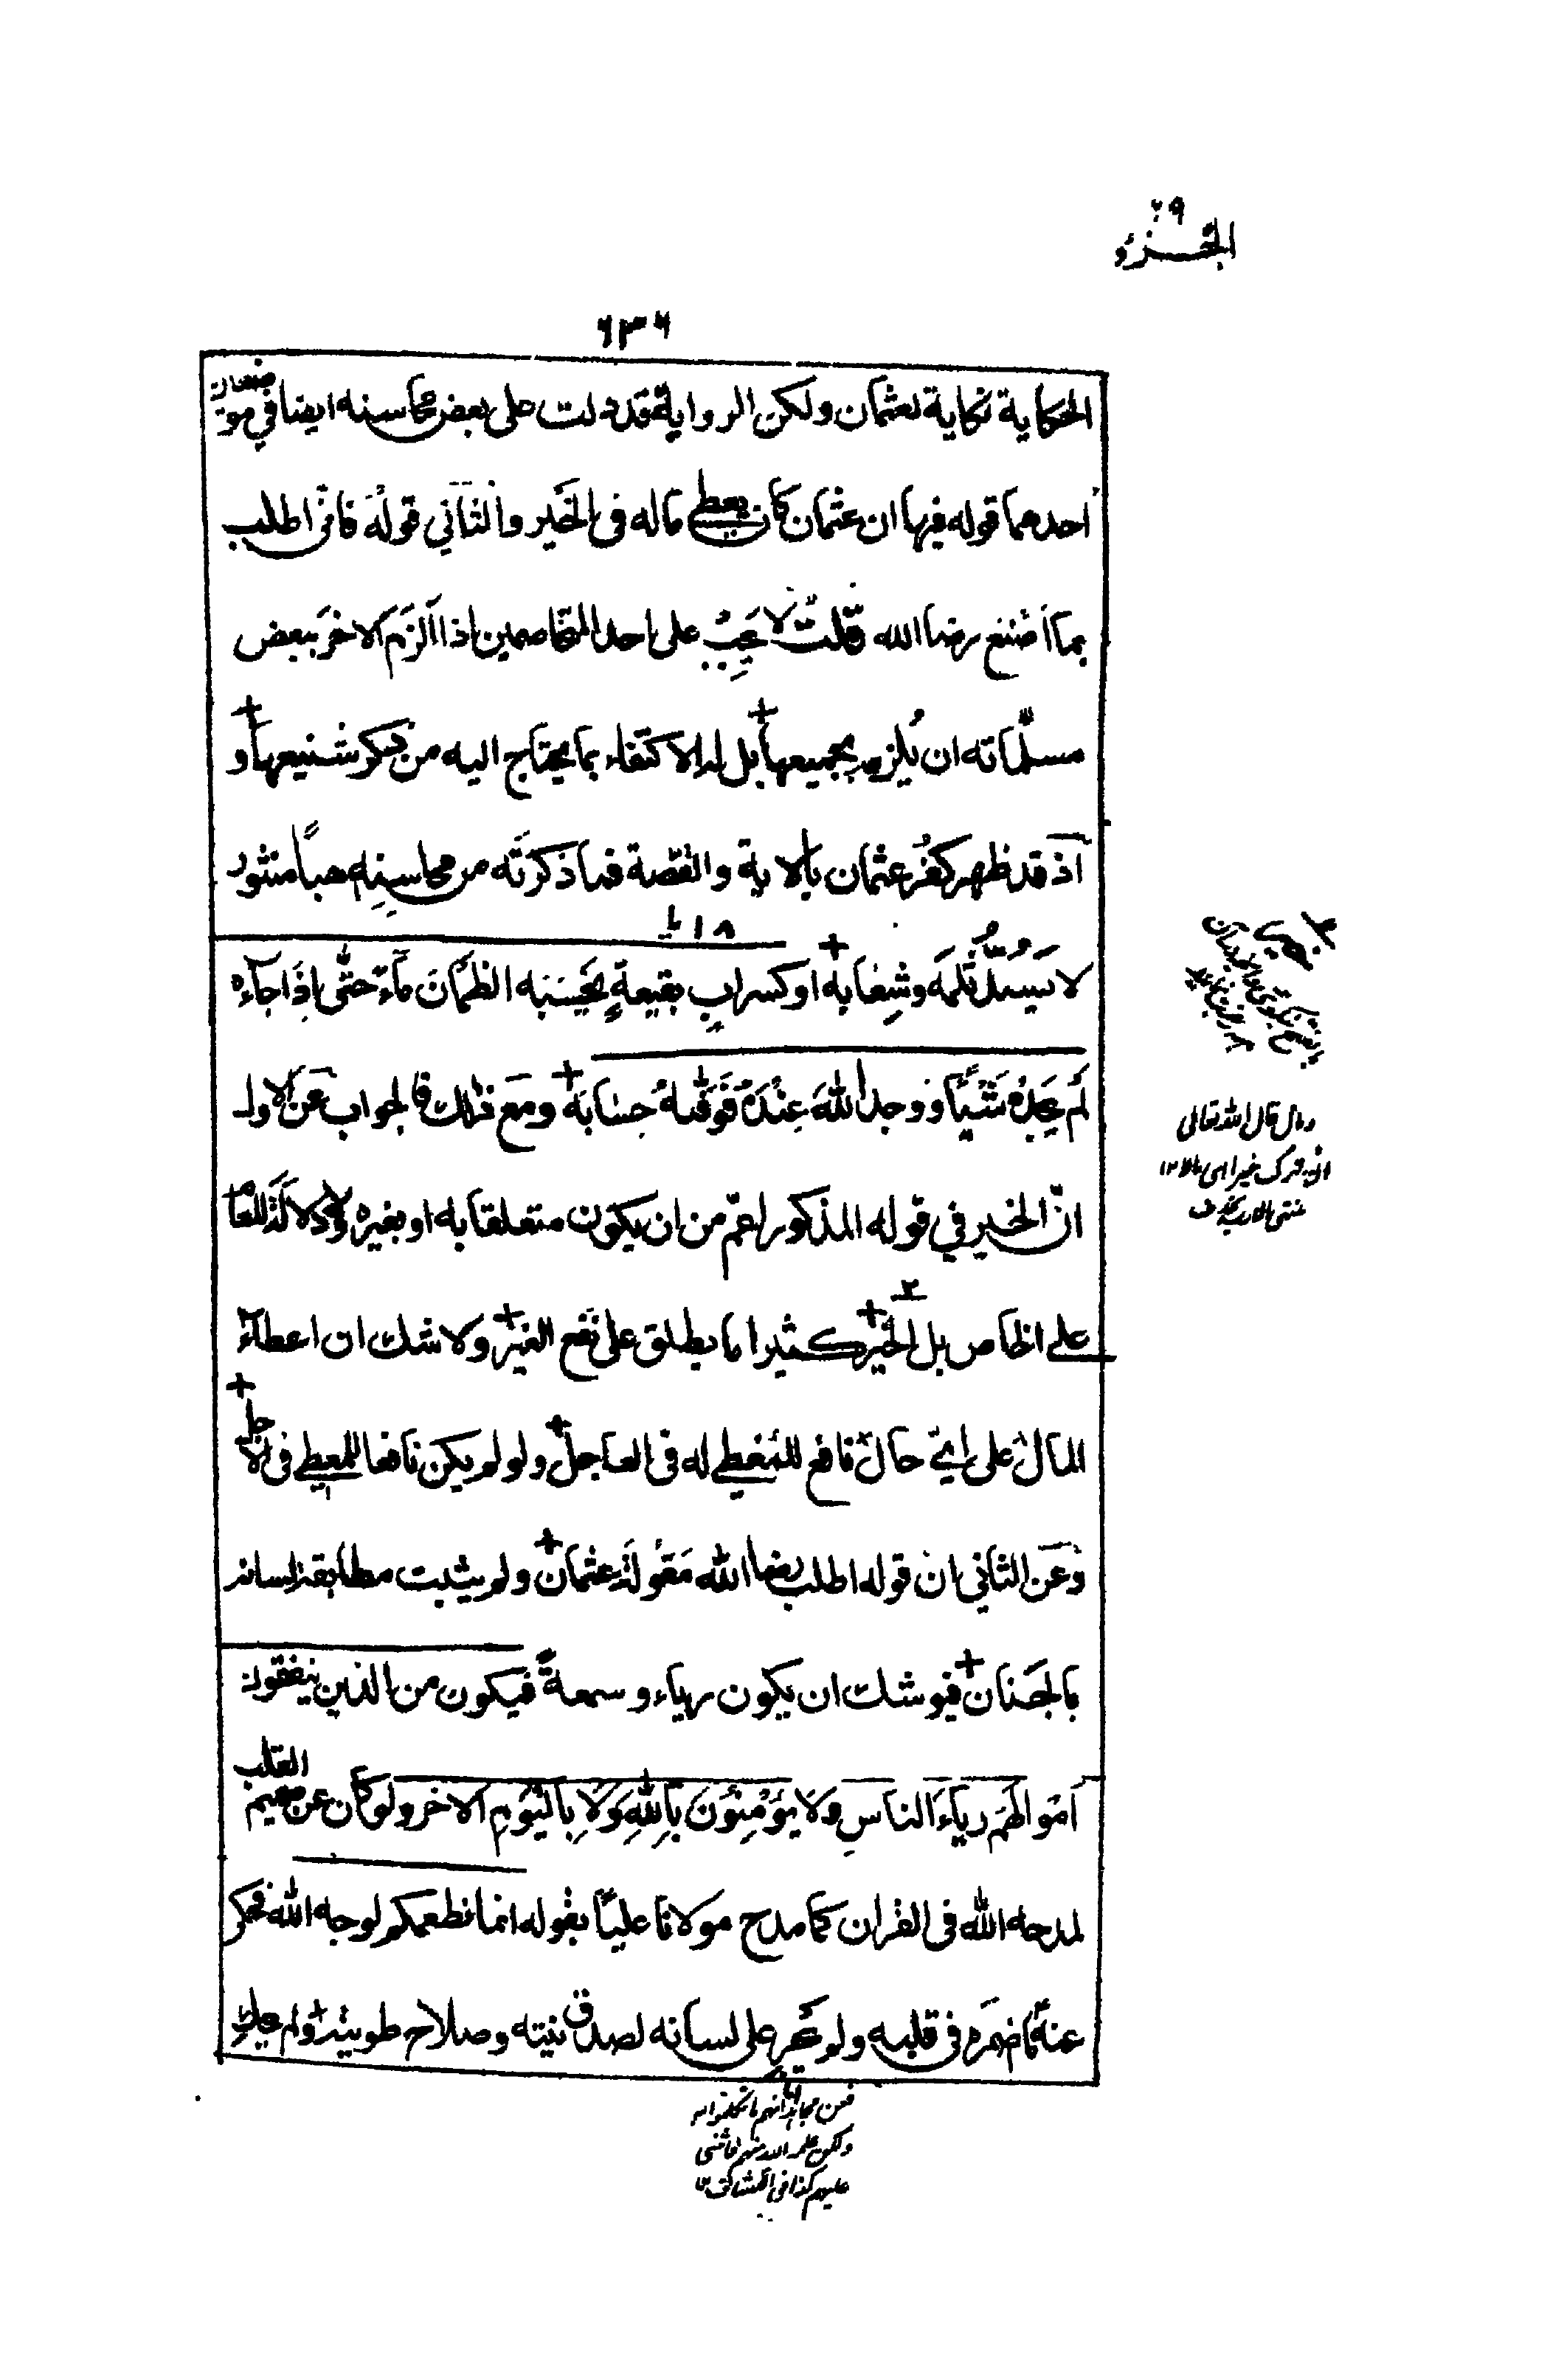 ٢٩
الجزء
٦٣٦
الحكاية نكاية لعثمان ولكن الرواية قد دلت على بعض محاسنه ايضا في موضعان
احدهما قوله فيها ان عثمان كان يعطى ماله فى الخير والثاني قوله فانى اطلب
بما اصنع رضا الله قلت لا يجب على احد المتخاصمين اذا الزم الاخر ببعض
مسلّماته ان يُلزمه بجميعها بل له الاكتفاء بما يحتاج اليه من ذكر شنيعها و
اذ قد ظهر كفر عثمان بالاية والقصة فما ذكرته من محاسنه هباً منثور
١٨
لا يَسُدُّ ثلمه وشِعابه او كسرابٍ بقيعةٍ يحسبه الظمآن مآء حتّى اذا جآءه
لم يجده شيئًا ووجد الله عنده فوفّىه حسابه ومع ذلك فالجواب عن الاول
انّ الخير في قوله المذكور اعمّ من ان يكون متعلقا به او بغيره ولا دلالة للعام
على الخاص بل الخير كثيرا ما يطلق على نفع الغير ولا شك ان اعطآء
المال على ايّ حال نافع للمُعطى له فى العاجل ولو لم يكن نافعا للمعطي فى الاجل
وعن الثاني ان قوله اطلب رضا الله مقولة عثمان ولم يثبت مطابقة لسانه
بالجنان فيوشك ان يكون رياء وسمعةً فيكون من الذين ينفقون
اموالهم ريآء الناس ولا يؤمنون بالله ولا باليوم الاخر ولو كان عن صميم القلب
لمدحه الله فى القران كما مدح مولانا عليّاً بقوله انما نطعمكم لوجه الله فحكى
عنه ما اضمره فى قلبه ولم يجر على لسانه لصدق نيته وصلاح طويته ولم
قال الله تعالى
ان ترك خيرا اى مالا ١٢
منتهى الارب
فعن مجاهد انهم ما تكلموا به
ولكن علمه الله منهم فاثنى
عليهم كذا فى الكشاف ١٢